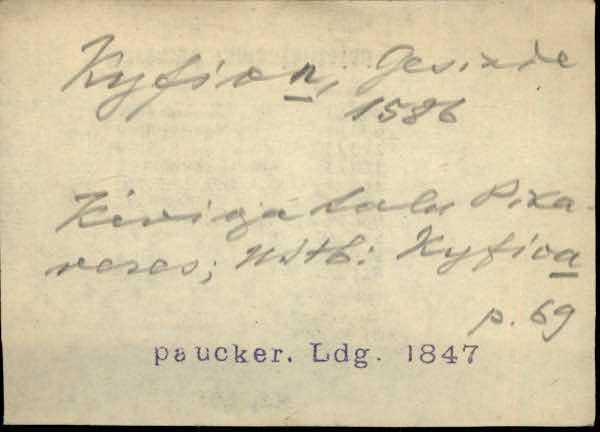 Kyfion, Gesinde
1586
Kivioja talu Pika-
veres; nStb: Kyfioa
p. 69
paucker. Ldg. 1847